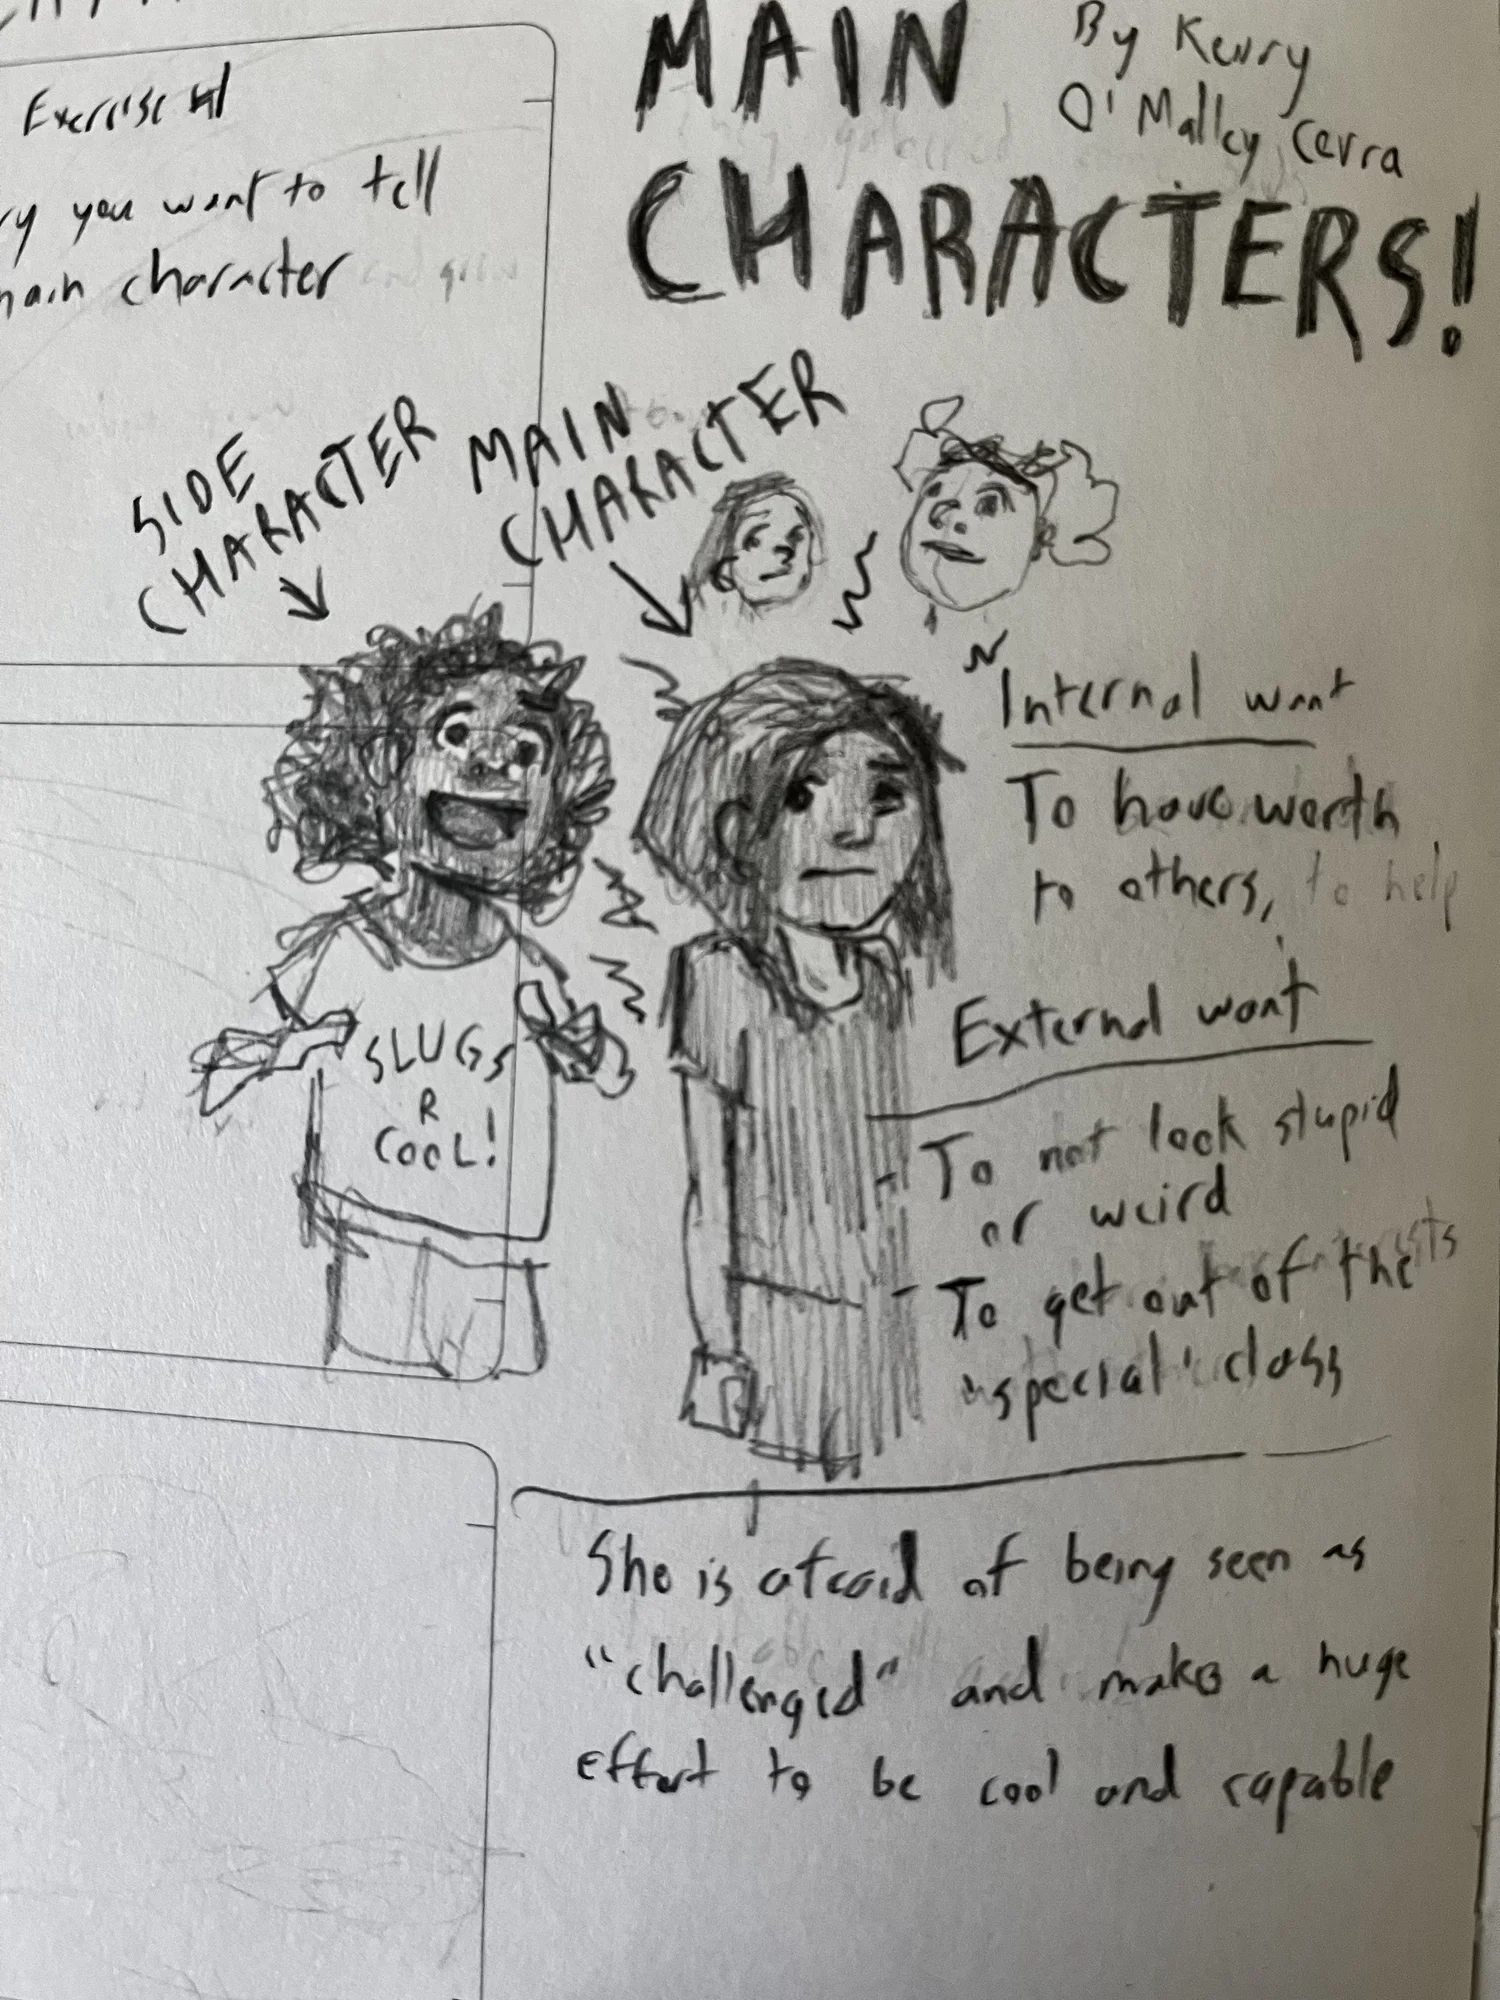 Exercise #1
you want to tell
main character
MAIN
CHARACTERS!
By Kerry
O'Malley Cerra
SIDE
CHARACTER
MAIN
CHARACTER
SLUGS
R
COOL!
Internal want
To have worth
to others, to help
External want
- To not look stupid
or weird
- To get out of the
'special' class
She is afraid of being seen as
"challenged" and makes a huge
effort to be cool and capable